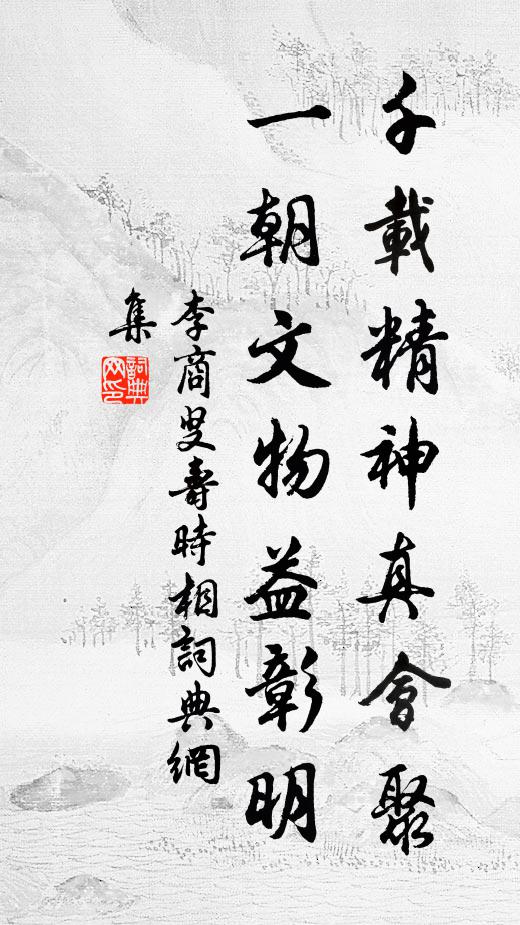 千載精神真會聚
一朝文物益彰明
李商叟壽時相詞典網
集
詞典
网印